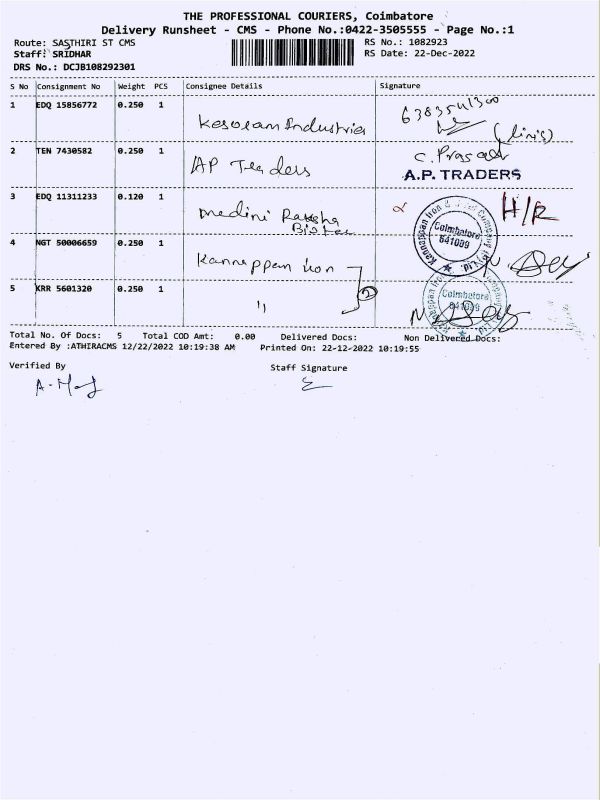 THE PROFESSIONAL COURIERS, Coimbatore
Delivery Runsheet - CMS - Phone No.:0422-3505555 - Page No.:1
Route: SASTHIRI ST CMS
Staff: SRIDHAR
DRS No.: DCJB108292301
RS No.: 1082923
RS Date: 22-Dec-2022
S No Consignment No Weight PCS Consignee Details Signature
1 EDQ 15856772 0.250 1
Kesoram Industries
6383541300
2 TEN 7430582 0.250 1
AP Traders
C. Prasad
A.P. TRADERS
3 EDQ 11311233 0.120 1
medini Raksha
H/R
Kannappan Iron & Company
Coimbatore
641009
4 NGT 50006659 0.250 1
Kannappan iron
5 KRR 5601320 0.250 1
"
2
Coimbatore
641009
Total No. Of Docs: 5 Total COD Amt: 0.00 Delivered Docs: Non Delivered Docs:
Entered By :ATHIRACMS 12/22/2022 10:19:38 AM Printed On: 22-12-2022 10:19:55
Verified By
Staff Signature